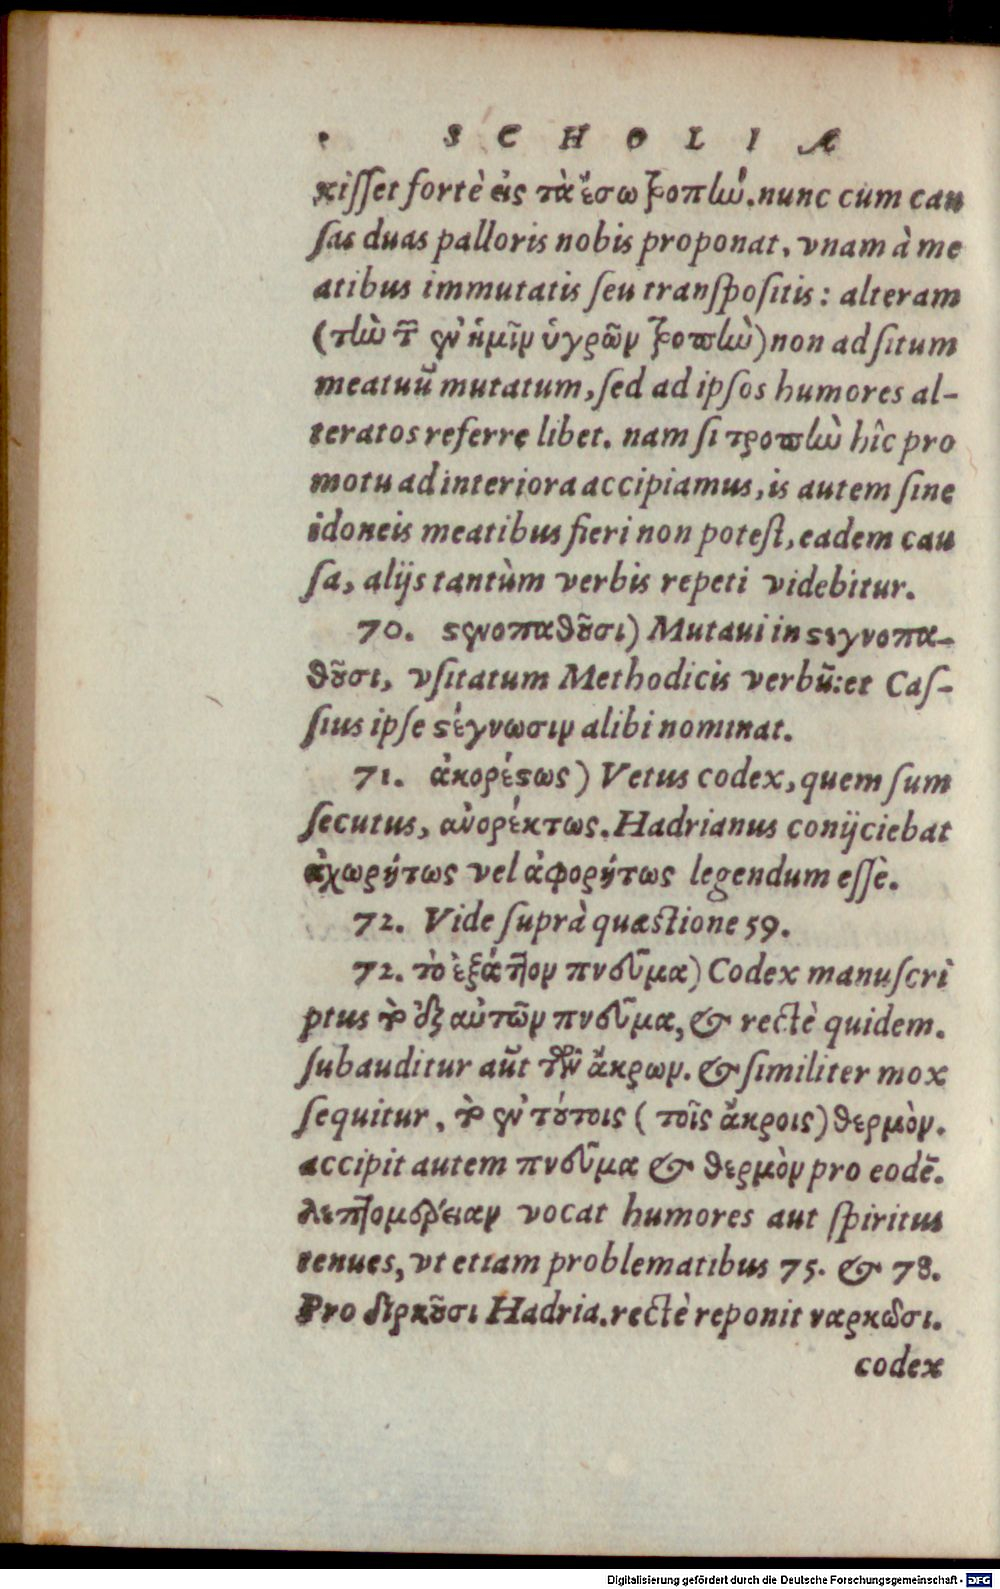 SCHOLIÆ
xisset fortè εἰς τὰ ἔσω ῥοπὴν. nunc cum cau
sas duas palloris nobis proponat, vnam à me
atibus immutatis seu transpositis: alteram
(τὴν τῶν ἐν ἡμῖν ὑγρῶν ῥοπὴν) non ad situm
meatuũ mutatum, sed ad ipsos humores al-
teratos referre libet. nam si τροπὴν hîc pro
motu ad interiora accipiamus, is autem sine
idoneis meatibus fieri non potest, eadem cau
sa, alijs tantùm verbis repeti videbitur.
70. ϛενοπαθοῦσι) Mutaui in ϛεγνοπα-
θοῦσι, vsitatum Methodicis verbũ: et Cas-
sius ipse ϛέγνωσιν alibi nominat.
71. ἀκορέϛως) Vetus codex, quem sum
secutus, ἀνορέκτως. Hadrianus conijciebat
ἀχωρήτως vel ἀφορήτως legendum essè.
72. Vide suprà quæstione 59.
72. τὸ ἐξάπτον πνεῦμα) Codex manuscri
ptus τὸ ἐξ αὐτῶν πνεῦμα, & rectè quidem.
subauditur aũt τῶν ἄκρων. & similiter mox
sequitur, τὸ ἐν τούτοις (τοῖς ἄκροις) θερμὸν.
accipit autem πνεῦμα & θερμὸν pro eodẽ.
λεπτομέρειαν vocat humores aut spiritus
tenues, vt etiam problematibus 75. & 78.
Pro διρκοῦσι Hadria. rectè reponit ναρκῶσι.
codex
Digitalisierung gefördert durch die Deutsche Forschungsgemeinschaft - DFG